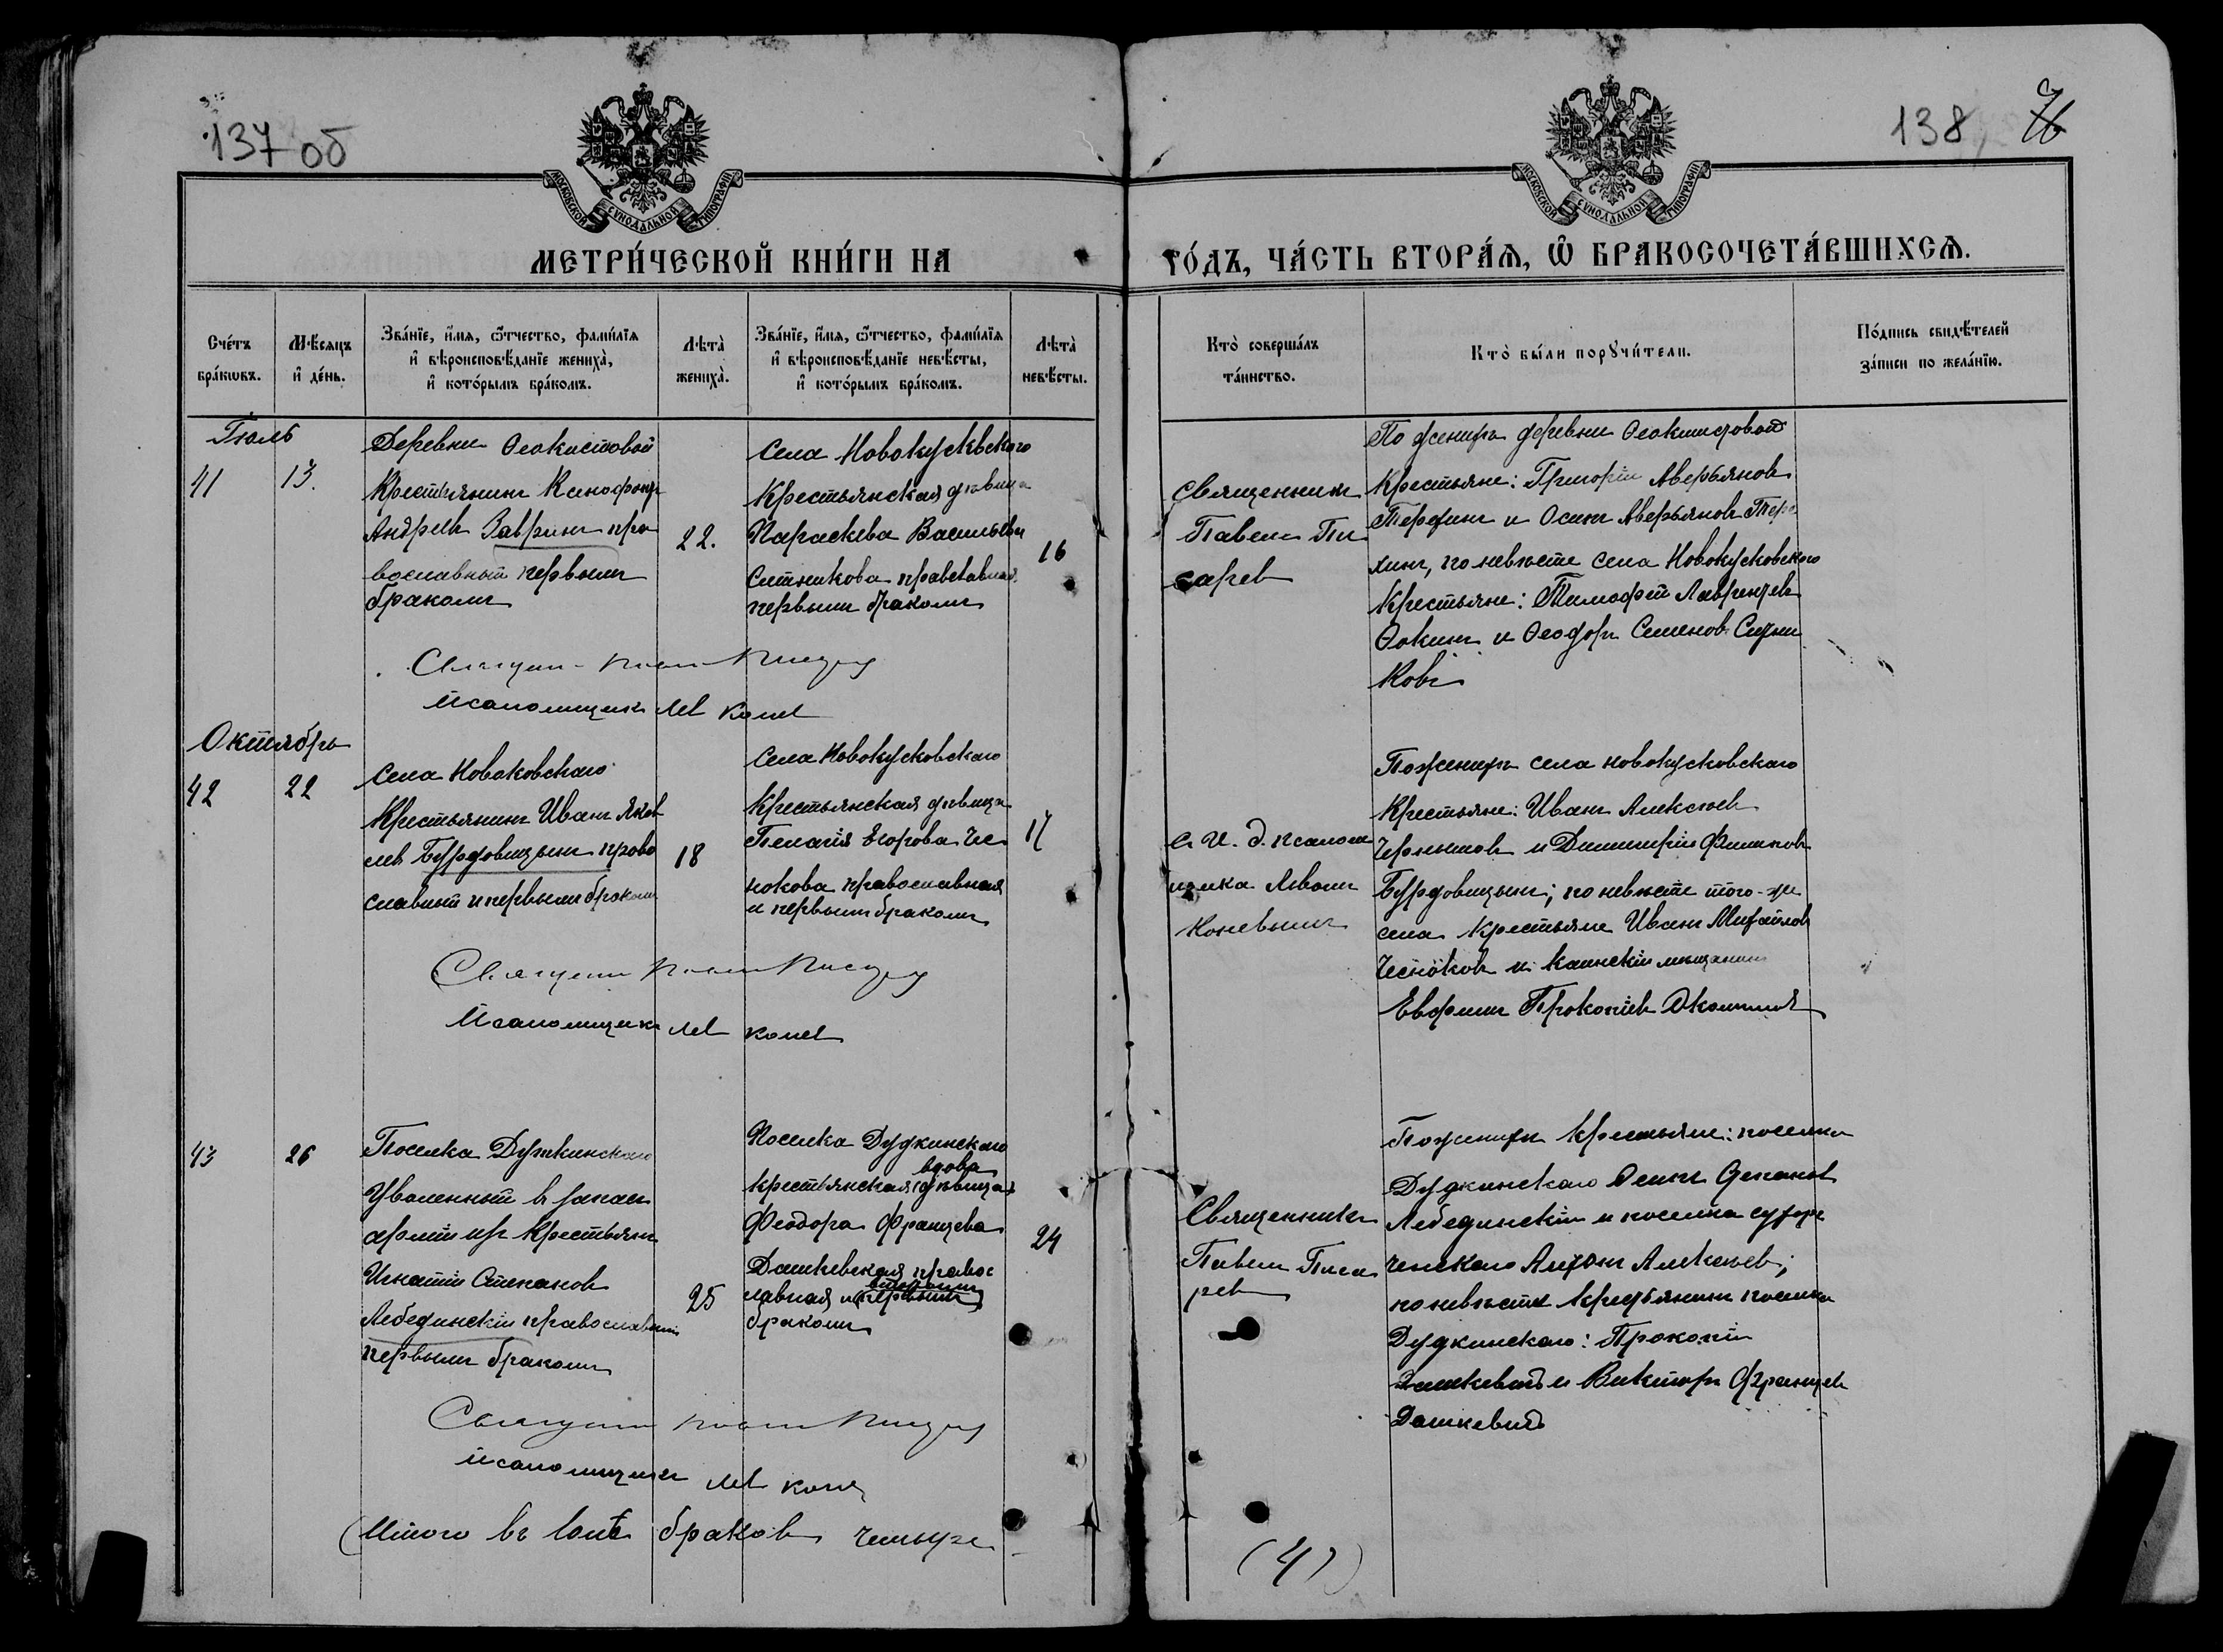 137 об
138
76
МОСКОВСКОЙ СѴНОДАЛЬНОЙ ТИПОГРАФІИ
МОСКОВСКОЙ СѴНОДАЛЬНОЙ ТИПОГРАФІИ
МЕТРИ́ЧЕСКОЙ КНИ́ГИ НА
ГО́ДЪ, ЧА́СТЬ ВТОРА́Ѧ, Ѽ БРАКОСОЧЕТА́ВШИХСѦ.
Сче́тъ
бра́кѡвъ.
Мѣ́сяцъ
и҆ де́нь.
Зва́нїе, и҆́мѧ, ѻ҆́тчество, фамѝлїѧ
и҆ вѣроисповѣ́данїе жениха̀,
и҆ кото́рымъ бра́комъ.
Лѣта̀
жениха̀.
Зва́нїе, и҆́мѧ, ѻ҆́тчество, фамѝлїѧ
и҆ вѣроисповѣ́данїе невѣ́сты,
и҆ кото́рымъ бра́комъ.
Лѣта̀
невѣ́сты.
Кто̀ соверша́лъ
та́инство.
Кто̀ бы́ли порꙋчи́тели.
По́дпись свидѣ́телей
за́писи по жела́нїю.
Іюль
41
13.
Деревни Ѳеоктистовой
Крестьянинъ Ксенофонтъ
Андреевъ Завринъ пра
вославный первымъ
бракомъ
22.
Села Новокусковскаго
Крестьянская дѣвица
Параскева Васильева
Ситникова православная
первымъ бракомъ
16
Священникъ
Павелъ Пи
саревъ
По женихѣ деревни Ѳеоктистовой
Крестьяне: Григорій Аверьяновъ
Терехинъ и Осипъ Аверьяновъ Тере
хинъ, по невѣсте села Новокусковскаго
Крестьяне: Тимофей Лаврентьевъ
Ѳокинъ и Ѳеодоръ Семеновъ Ситни
ковъ
Священ. Павелъ Писаревъ
Псаломщикъ Левъ Коневъ
Октябрь
42
22
Села Новоковскаго
Крестьянинъ Иванъ Яков
левъ Бурдовицынъ право
славный и первымъ бракомъ
18
Села Новокусковскаго
Крестьянская дѣвица
Пелагія Егорова Чес
нокова православная
и первымъ бракомъ
17
с И. д. псалом
щика Львомъ
Коневымъ
По женихѣ села новокусковскаго
Крестьяне: Иванъ Алексѣевъ
Чернышовъ и Димитрій Филиповъ
Бурдовицынъ; по невѣсте того-же
села крестьяне Иванъ Михайловъ
Чесноковъ и Каинскій мѣщанинъ
Евфимъ Прокопіевъ
Священн Павелъ Писаревъ
Псаломщикъ Левъ Коневъ
43
26
Поселка Дудкинскаго
Уволенный в запасъ
арміи изъ Крестьянъ
Игнатій Степановъ
Лебединскій православный
первымъ бракомъ
25
Поселка Дудкинскаго
вдова
крестьянская (дѣвица)
Феодора Францева
Дашкевская правос
вторымъ
лавная и (первымъ)
бракомъ
24
Священникъ
Павелъ Писа
ревъ
По женихѣ Крестьяне: поселка
Дудкинскаго Осипъ Степановъ
Лебединскій и поселка
Антонъ Алексѣевъ;
по невѣсте крестьянинъ поселка
Дудкинскаго: Прокопій
Дашкевичъ и Викторъ Францевъ
Дашкевичъ
Священн Павелъ Писаревъ
Псаломщикъ Левъ Коневъ
(Итого въ браковъ четыре
(4)